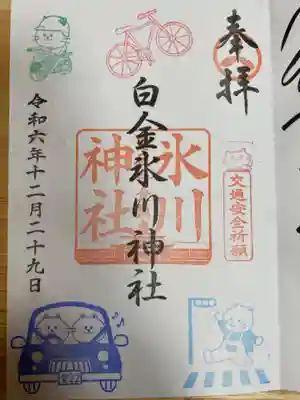 奉拝
白金氷川神社
氷川神社
交通安全祈願
令和六年十二月二十九日